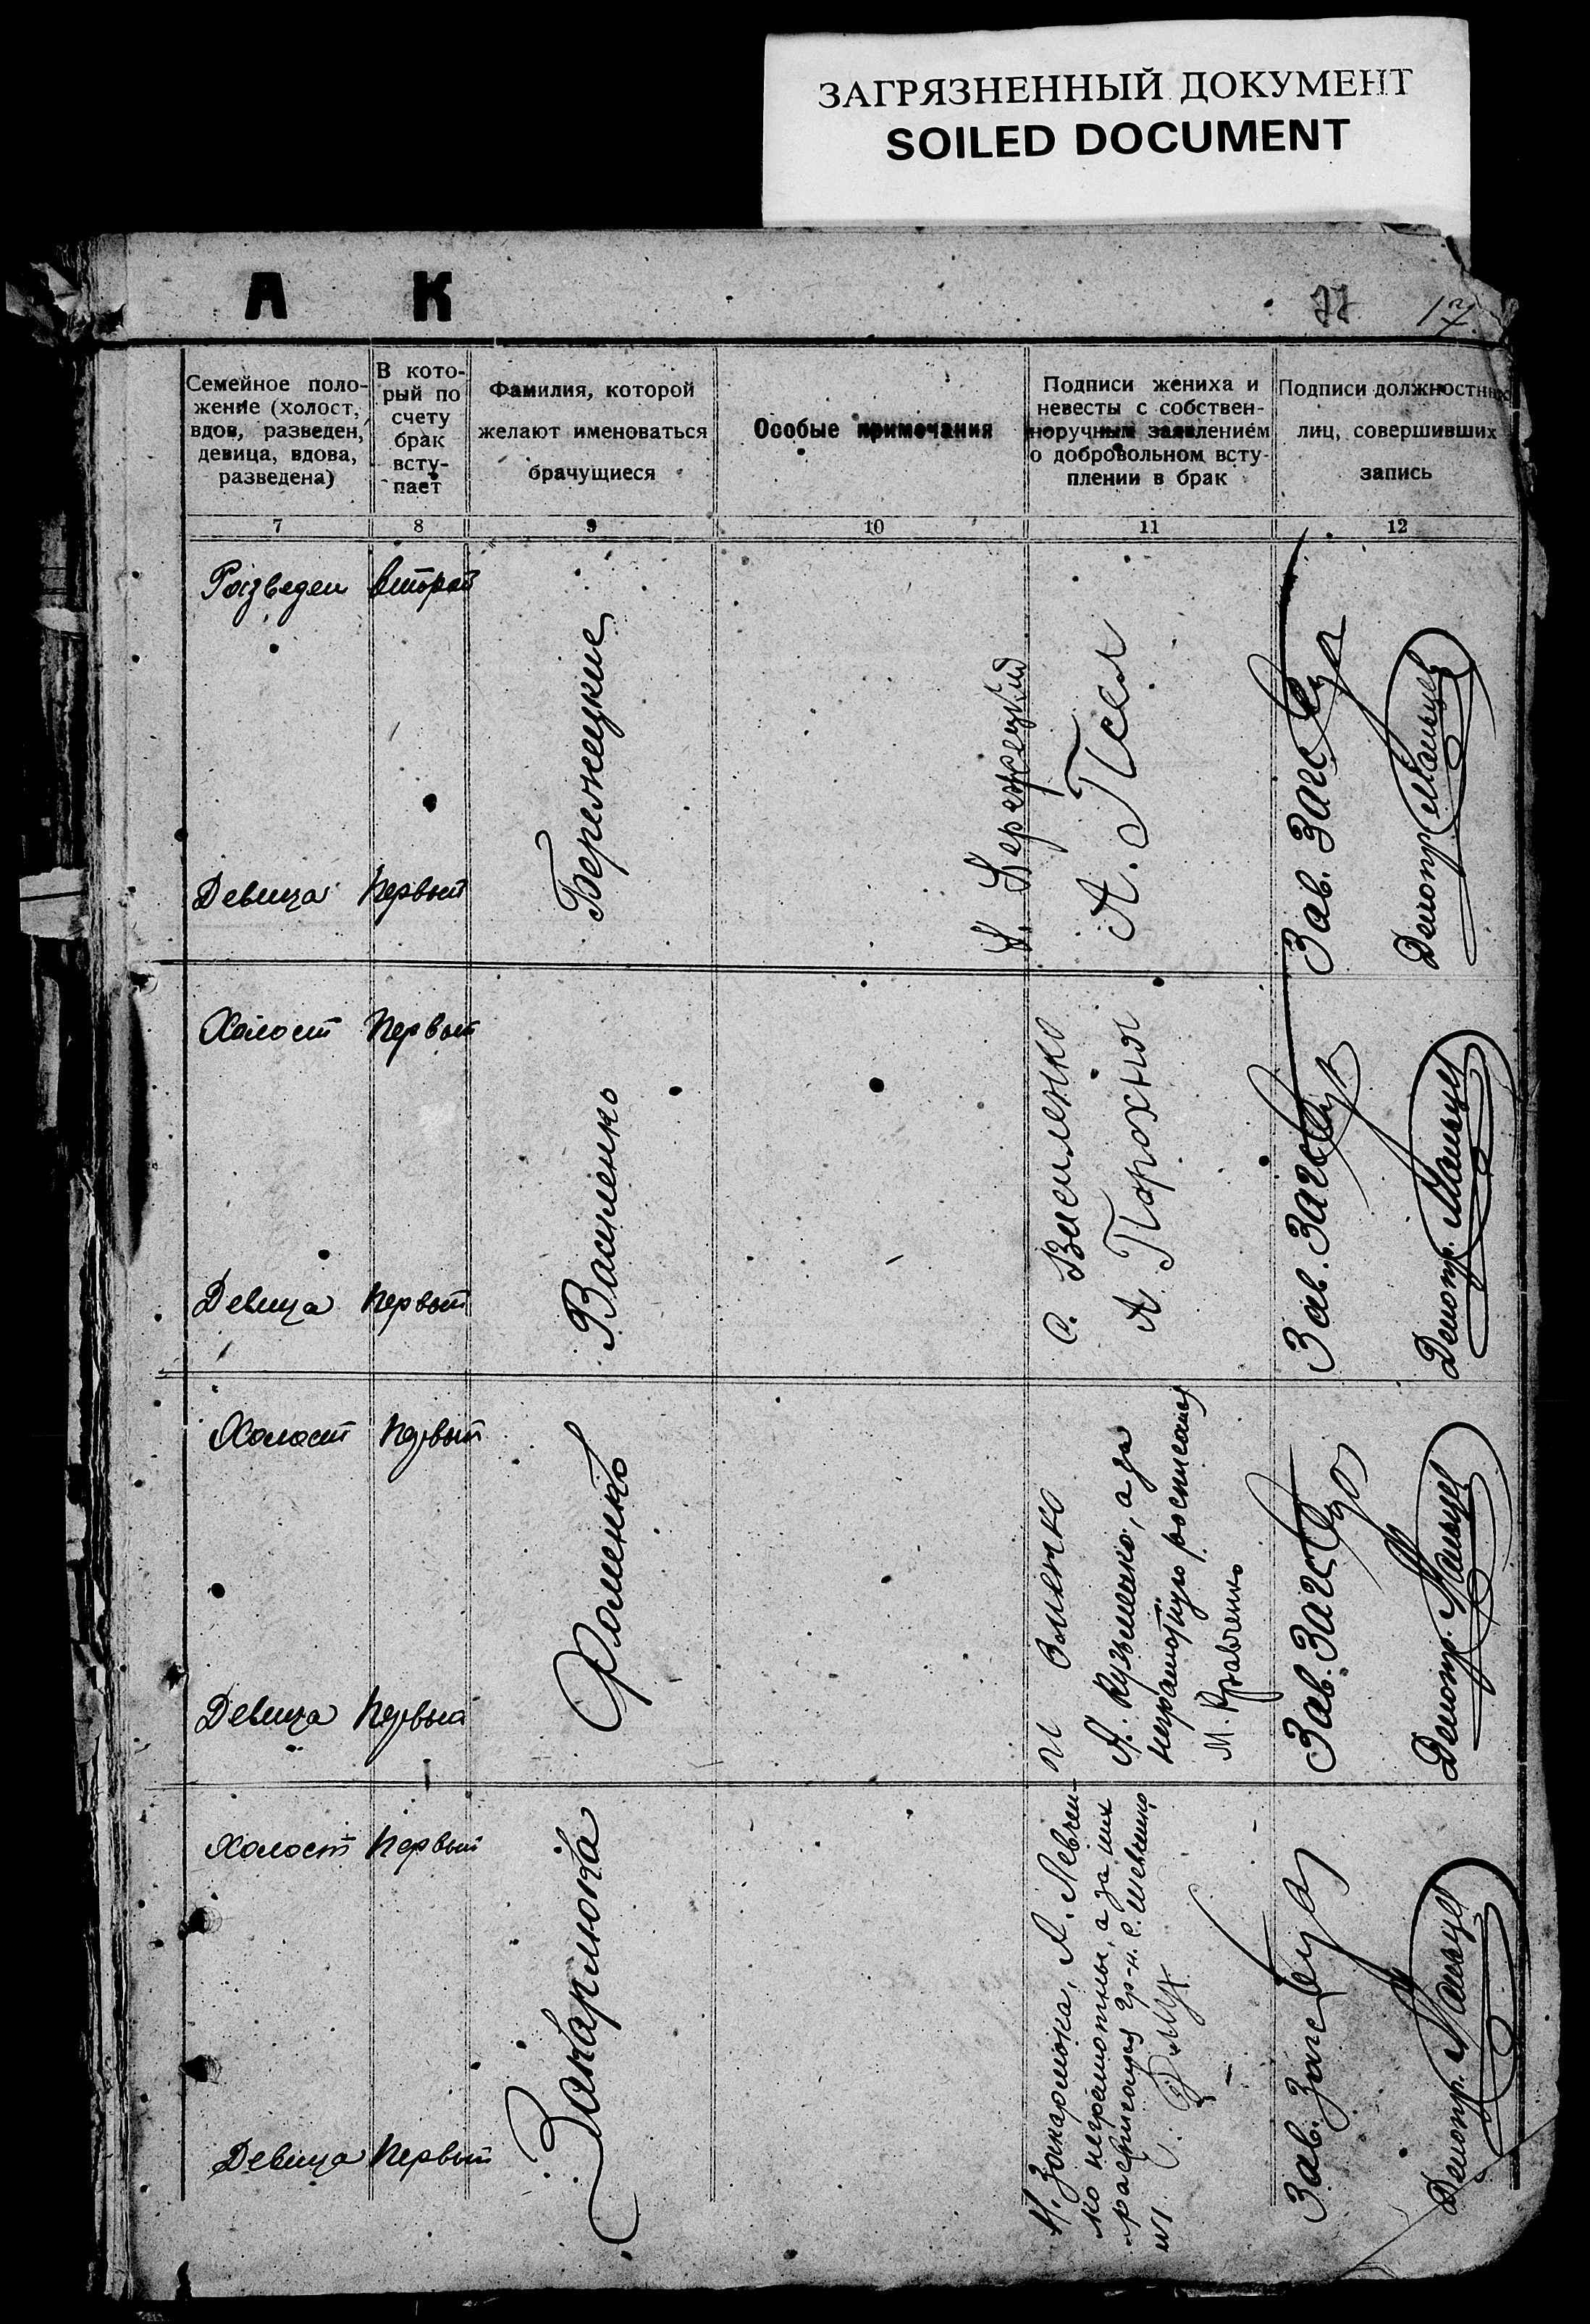 ЗАГРЯЗНЕННЫЙ ДОКУМЕНТ
SOILED DOCUMENT
А К
77
17
Семейное поло-
жение (холост,
вдов, разведен,
девица, вдова,
разведена)
В кото-
рый по
счету
брак
всту-
пает
Фамилия, которой
желают именоваться
брачущиеся
Особые примечания
Подписи жениха и
невесты с собствен-
норучным заявлением
о добровольном всту-
плении в брак
Подписи должностных
лиц, совершивших
запись
7 8 9 10 11 12
Розведен второй
Девица первый
Бережецкие
Н. Бережецкий
А. Псел
Зав. Загс
Делопр.
Холост первый
Девица первый
Василенко
С. Василенко
А Парохня
Зав. Загс
Делопр.
Холост первый
Девица первый
Фоменко
А. Кузьменко, а за
неграмотную росписался
М. Кравченко
Зав. Загс
Делопр.
Холост первый
Девица первый
Закарлюка
Н. Закарлюка, А. Левчен-
ко неграмотны, а за них
расписался гр-н. с. Шевченко
Зав. Загс
Делопр.